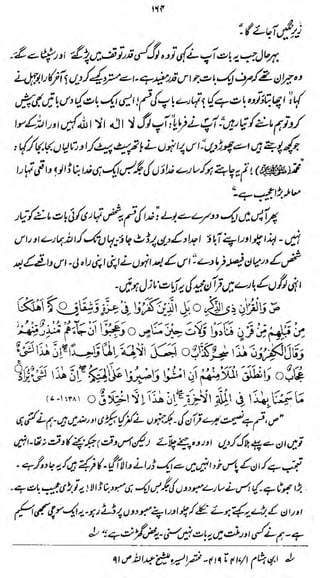 ۱۶۳
زیرنگیں آجائے گا۔"
بہر حال جب یہ بات آپ نے کہی تو وہ لوگ کسی قدر توقف میں پڑ گئے اور سٹپٹا سے گئے۔
وہ حیران تھے کہ صرف ایک بات جو اس قدر مفید ہے۔ اسے مسترد کیسے کر دیں؟ آخر کار ابو جہل نے
کہا: اچھا بتاؤ تو وہ بات ہے کیا؟ تمہارے باپ کی قسم! ایسی ایک بات کیا دس باتیں بھی پیش
کرو تو ہم ماننے کو تیار ہیں۔ آپ نے فرمایا: آپ لوگ لا الہ الا اللہ کہیں اور اللہ کے سوا
جو کچھ پوجتے ہیں اسے چھوڑ دیں۔" اس پر انہوں نے ہاتھ پیٹ پیٹ کر اور تالیاں بجا بجا کر کہا:
"محمد! (ﷺ) تم یہ چاہتے ہو کہ سارے خداؤں کی جگہ بس ایک ہی خدا بنا ڈالو؟ واقعی تمہارا
معاملہ بڑا عجیب ہے۔"
پھر آپس میں ایک دوسرے سے بولے: "خدا کی قسم یہ شخص تمہاری کوئی بات ماننے کو تیار
نہیں۔ لہٰذا چلو اور اپنے آباؤ اجداد کے دین پر ڈٹ جاؤ، یہاں تک کہ اللہ ہمارے اور اس
شخص کے درمیان فیصلہ فرما دے۔" اس کے بعد انہوں نے اپنی اپنی راہ لی۔ اس واقعے کے بعد
انہی لوگوں کے بارے میں قرآن مجید کی یہ آیات نازل ہوئیں۔
صٓ وَالْقُرْاٰنِ ذِی الذِّكْرِ ۝ بَلِ الَّذِیْنَ كَفَرُوْا فِیْ عِزَّةٍ وَّشِقَاقٍ ۝ كَمْ اَهْلَكْنَا
مِنْ قَبْلِهِمْ مِّنْ قَرْنٍ فَنَادَوْا وَّلَاتَ حِیْنَ مَنَاصٍ ۝ وَعَجِبُوْۤا اَنْ جَآءَهُمْ مُّنْذِرٌ مِّنْهُمْ
وَقَالَ الْكٰفِرُوْنَ هٰذَا سٰحِرٌ كَذَّابٌ ۝ اَجَعَلَ الْاٰلِهَةَ اِلٰهًا وَّاحِدًا ۚ اِنَّ هٰذَا لَشَیْءٌ
عُجَابٌ ۝ وَانْطَلَقَ الْمَلَاُ مِنْهُمْ اَنِ امْشُوْا وَاصْبِرُوْا عَلٰۤی اٰلِهَتِكُمْ ۚ اِنَّ هٰذَا لَشَیْءٌ یُّرَادُ ۝
مَا سَمِعْنَا بِهٰذَا فِی الْمِلَّةِ الْاٰخِرَةِ ۚ اِنْ هٰذَاۤ اِلَّا اخْتِلَاقٌ ۝ (۳۸:۱-۷)
"ص، قسم ہے نصیحت بھرے قرآن کی۔ بلکہ جنہوں نے کفر کیا ہیکڑی اور ضد میں ہیں۔ ہم نے کتنی ہی
قومیں ان سے پہلے ہلاک کر دیں اور وہ چیخے چلائے (لیکن اس وقت) جبکہ بچنے کا وقت نہ تھا۔ انہیں
تعجب ہے کہ ان کے پاس خود انہیں میں سے ایک ڈرانے والا آ گیا۔ کافر کہتے ہیں کہ یہ جادوگر ہے۔
بڑا جھوٹا ہے۔ کیا اس نے سارے معبودوں کی جگہ بس ایک ہی معبود بنا ڈالا! یہ تو بڑی عجیب بات ہے۔
اور ان کے بڑے یہ کہتے ہوئے نکلے کہ چلو اور اپنے معبودوں پر ڈٹے رہو۔ یہ ایک سوچی سمجھی اسکیم
ہے۔ ہم نے کسی اور ملت میں یہ بات نہیں سنی۔ یہ محض گھڑنت ہے۔"
ابن ہشام ۱/ ۴۱۷ تا ۴۱۹۔ مختصر السیرۃ للشیخ عبداللہ ص ۹۱